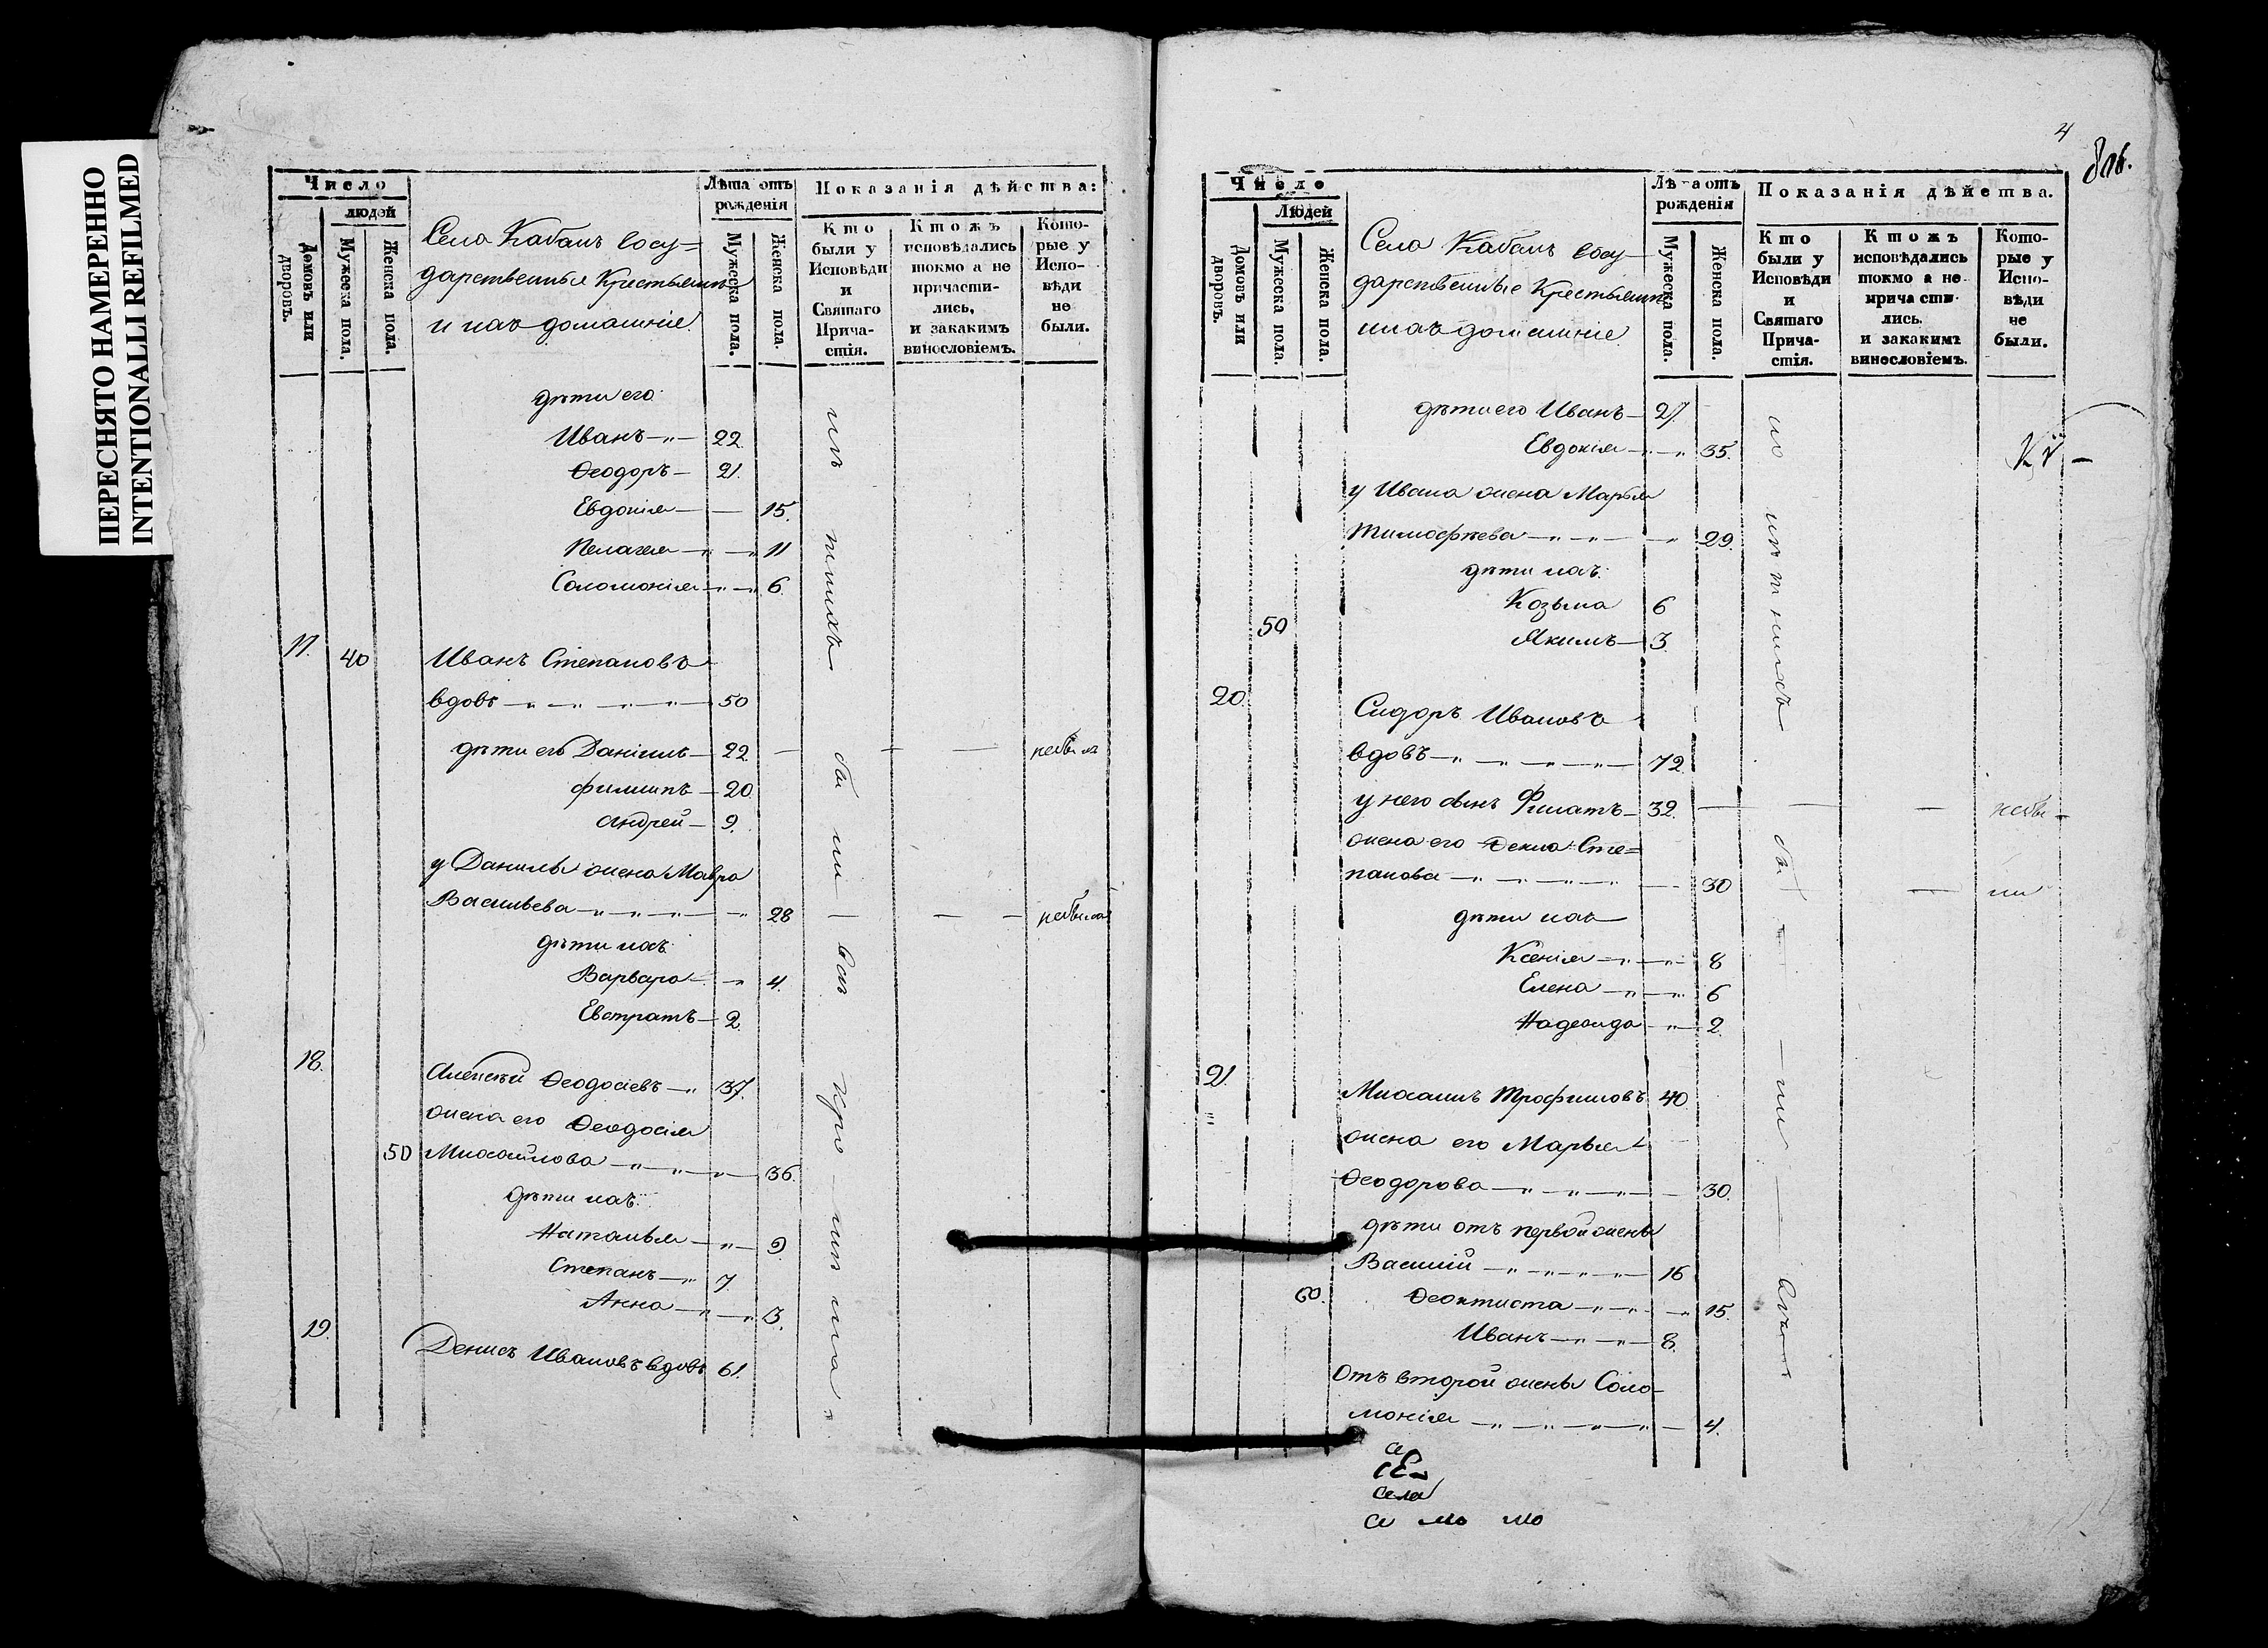 ПЕРЕСНЯТО НАМЕРЕННО
INTENTIONALLI REFILMED
Число
людей
Домовъ или дворовъ.
Мужеска пола.
Женска пола.
Села Кабанъ Госу=
дарственныя Крестьяннѣ
и ихъ домашніе.
Лѣта отъ рожденія
Мужеска пола.
Женска пола.
Показанія дѣйства:
Кто были у Исповѣди и Святаго Прича-стія.
Ктожъ исповѣдались токмо а не причасти-лись, и закакимъ винословіемъ.
Кото-рые у Испо-вѣди не были.
дѣти его
Иванъ 22.
Ѳеодоръ 21.
Евдокія 15.
Пелагея 11
Соломонія 6.
17. 40 Иванъ Степановъ
вдовъ 50
дѣти его Даніилъ 22
Филиппъ 20
Андрей 9.
у Данилы жена Мавра
Васильева 28
дѣти ихъ
Варвара 4.
Евстратъ 2.
18. Алексѣй Ѳеодосіевъ 37.
жена его Ѳеодосія
50 Михайлова 36.
дѣти ихъ
Наталья 9
Степанъ 7.
Анна 3.
19. Денисъ Ивановъ вдовъ 61.
4
Число
Людей
Домовъ или дворовъ.
Мужеска пола.
Женска пола.
Села Кабанъ Госу-
дарственные Крестьяннѣ
ихъ домашніе
Лѣта отъ рожденія
Мужеска пола.
Женска пола.
Показанія дѣйства.
Кто были у Исповѣди и Святаго Прича-стія.
Ктожъ исповѣдались токмо а не причасти-лись. и закакимъ винословіемъ.
Кото-рые у Испо-вѣди не были.
дѣти его Иванъ 27.
Евдокія 35.
у Ивана жена Марья
Тимофѣева 29.
дѣти ихъ
Козьма 6
50 Якимъ 3.
20. Сидоръ Ивановъ
вдовъ 72
у него сынъ Филатъ 32.
жена его Ѳекла Сте=
панова 30
дѣти ихъ
Ксенія 8
Елена 6
Надежда 2.
21. Михаилъ Трофимовъ 40
жена его Марья
Ѳеодорова 30.
дѣти отъ первой жены
Василій 16
60. Ѳеоктиста 15.
Иванъ 8.
Отъ второй жены Соло-
монія 4.
села